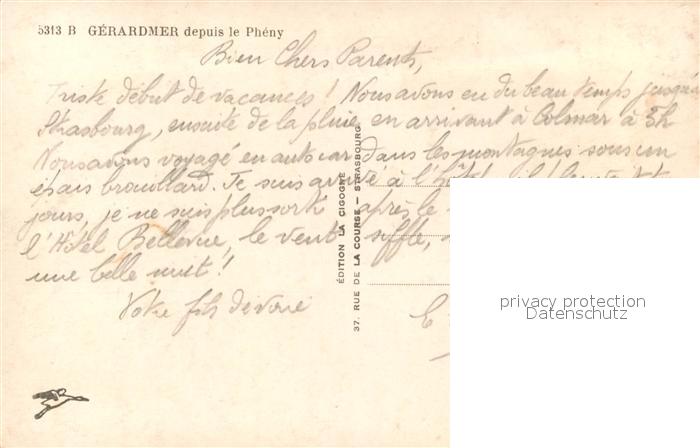 5313 B GÉRARDMER depuis le Phény
Bien Chers Parents,
Triste début de vacances ! Nous avons eu du beau temps jusqu'à
Strasbourg, ensuite de la pluie, en arrivant à Colmar à 3h
Nous avons voyagé en autocar dans les montagnes sous un
épais brouillard. Je suis arrivé à l'hôtel
jours, je ne suis plus sorti après le
l'Hôtel Bellevue, le vent siffle,
une belle nuit !
Votre fils dévoué
ÉDITION LA CIGOGNE
37, RUE DE LA COURSE — STRASBOURG
privacy protection
Datenschutz